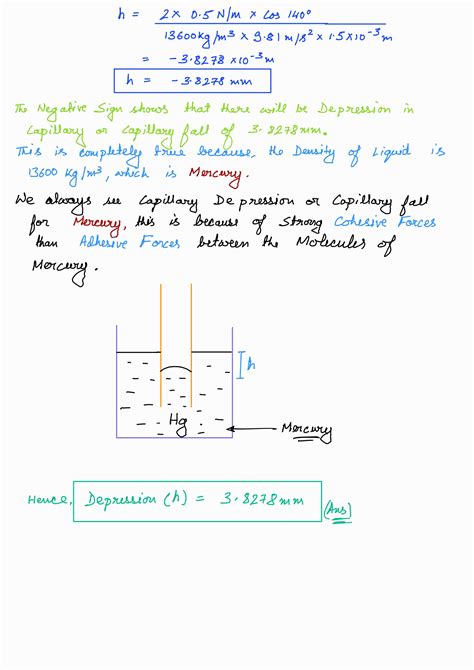 h = 2 x 0.5 N/m x cos 140°
13600 kg/m³ x 9.81 m/s² x 1.5x10⁻³ m
= -3.8278 x10⁻³ m
h = -3.8278 mm
The Negative Sign shows that there will be Depression in
Capillary or Capillary fall of 3.8278mm.
This is completely true because, the Density of Liquid is
13600 Kg/m³, which is Mercury.
We always see Capillary Depression or Capillary fall
for Mercury, this is because of Strong Cohesive Forces
than Adhesive Forces between the Molecules of
Mercury.
h
Hg
Mercury
Hence, Depression (h) = 3.8278mm (Ans)